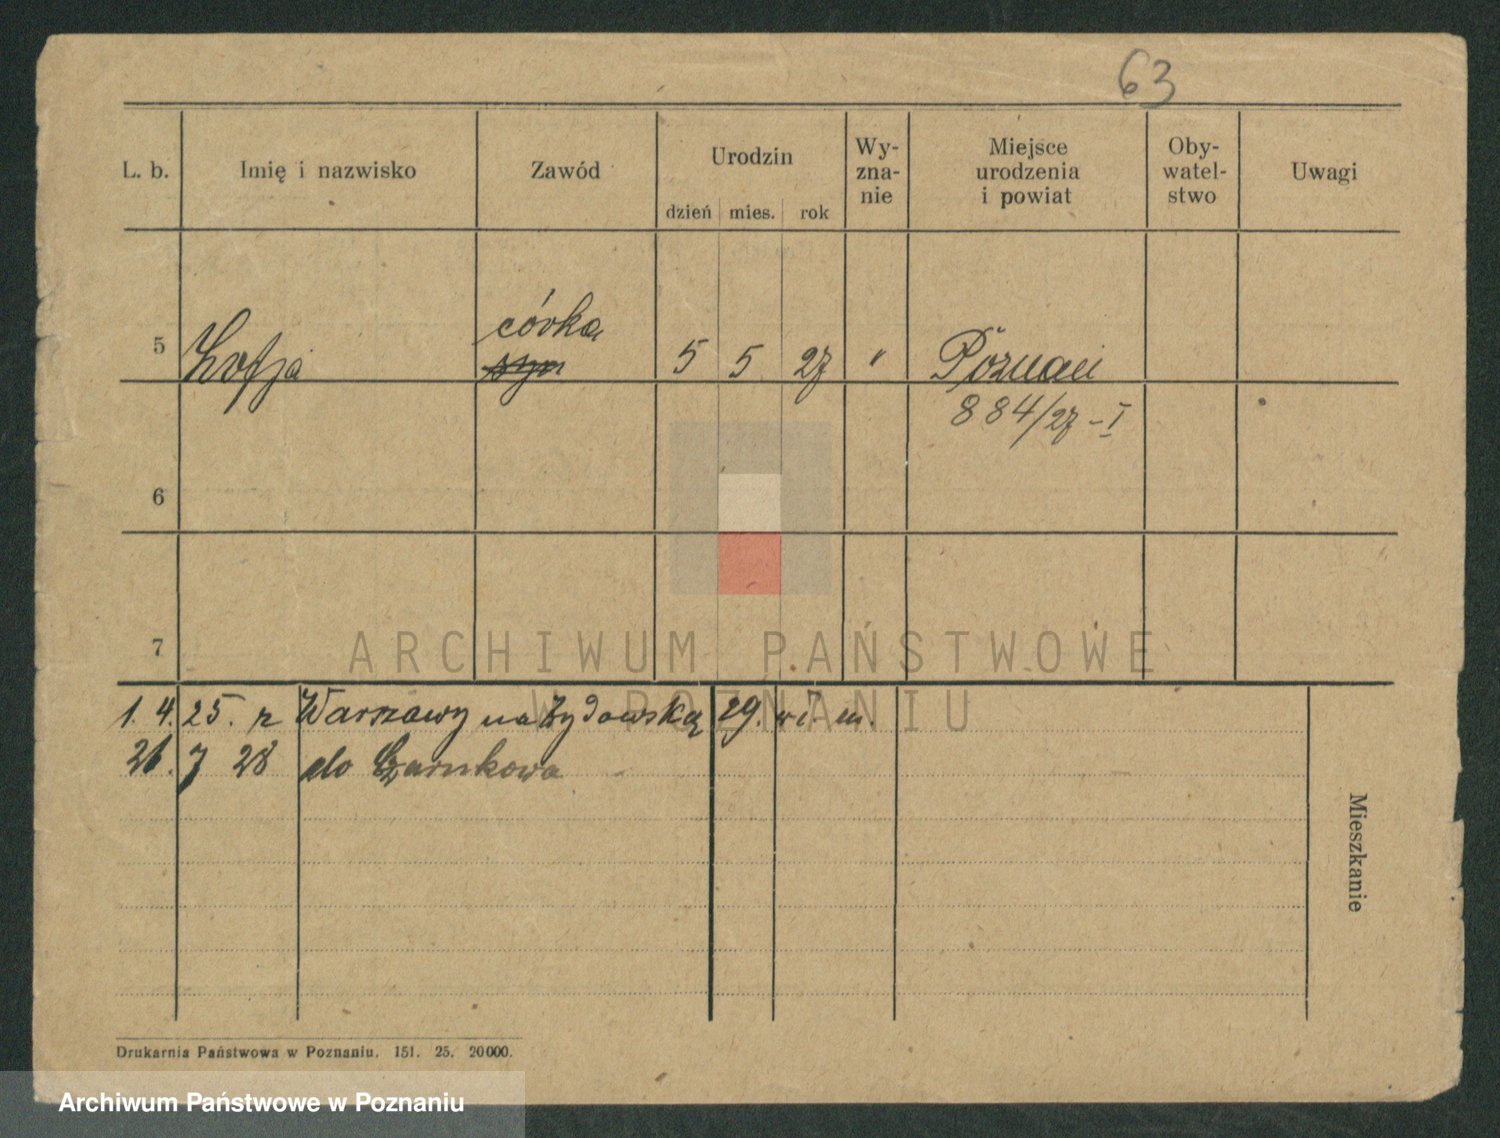 63
L. b. Imię i nazwisko Zawód Urodzin dzień mies. rok Wy-zna-nie Miejsce urodzenia i powiat Oby-watel-stwo Uwagi
córka
5 Zofja syn 5 5 27 " Poznań
884/27 - I
6
7
ARCHIWUM PAŃSTWOWE
W POZNANIU
1. 4. 25. z Warszawy na Żydowską 29. m.
26. 7 28 do Czarnkowa
Mieszkanie
Drukarnia Państwowa w Poznaniu. 151. 25. 20000.
Archiwum Państwowe w Poznaniu